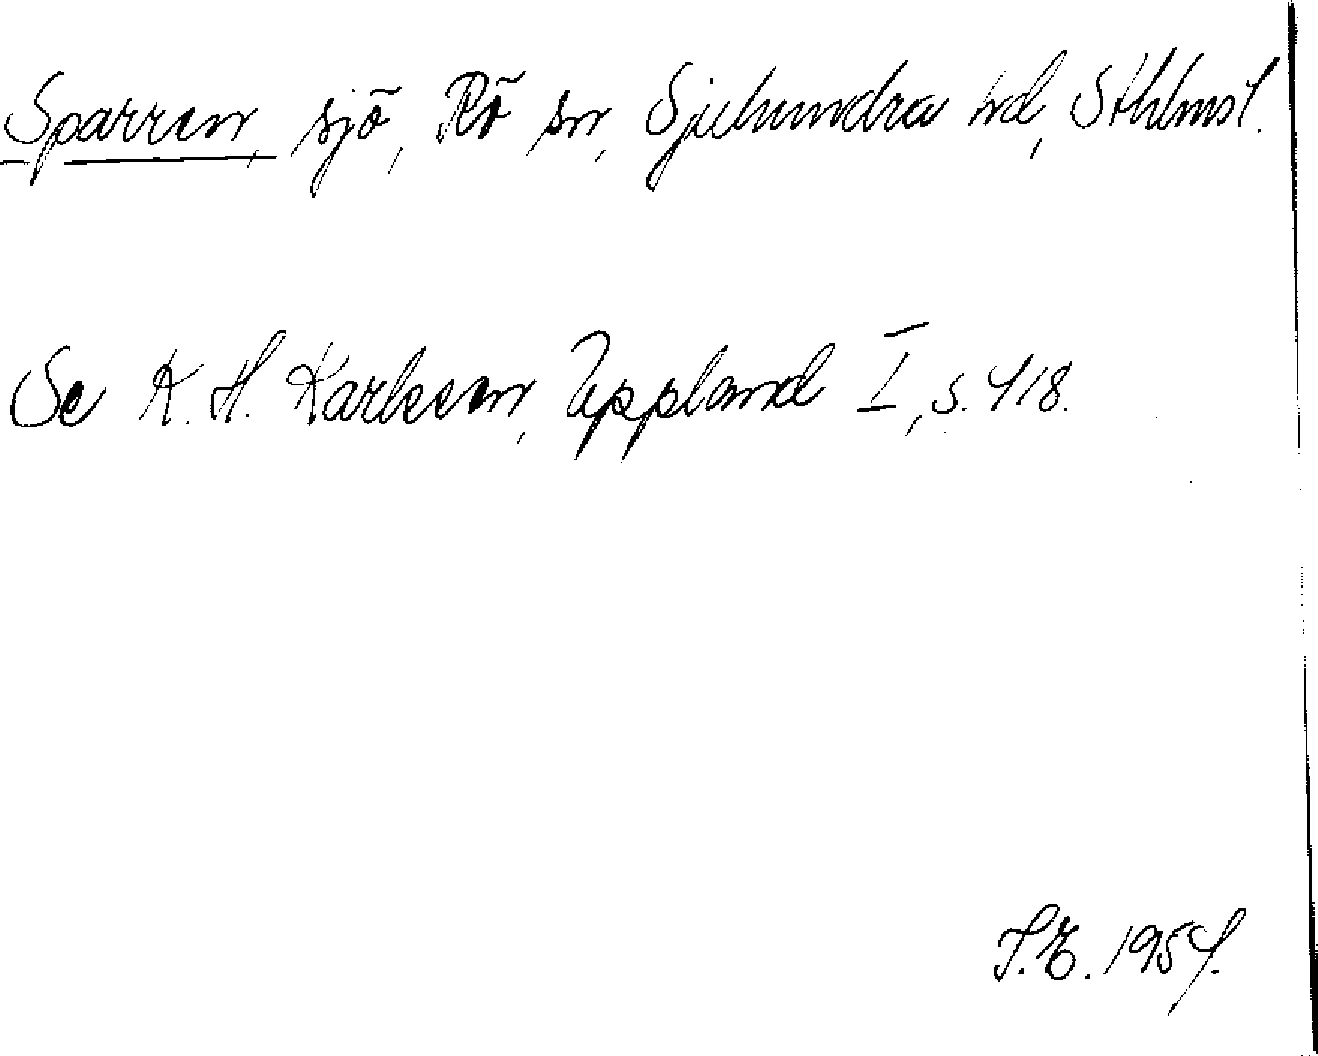 Sparren, sjö, Rö sn, Sjuhundra hd, Sthlms l.
Se K. H. Karlsson, Uppland I, s. 418.
T.E. 1954.